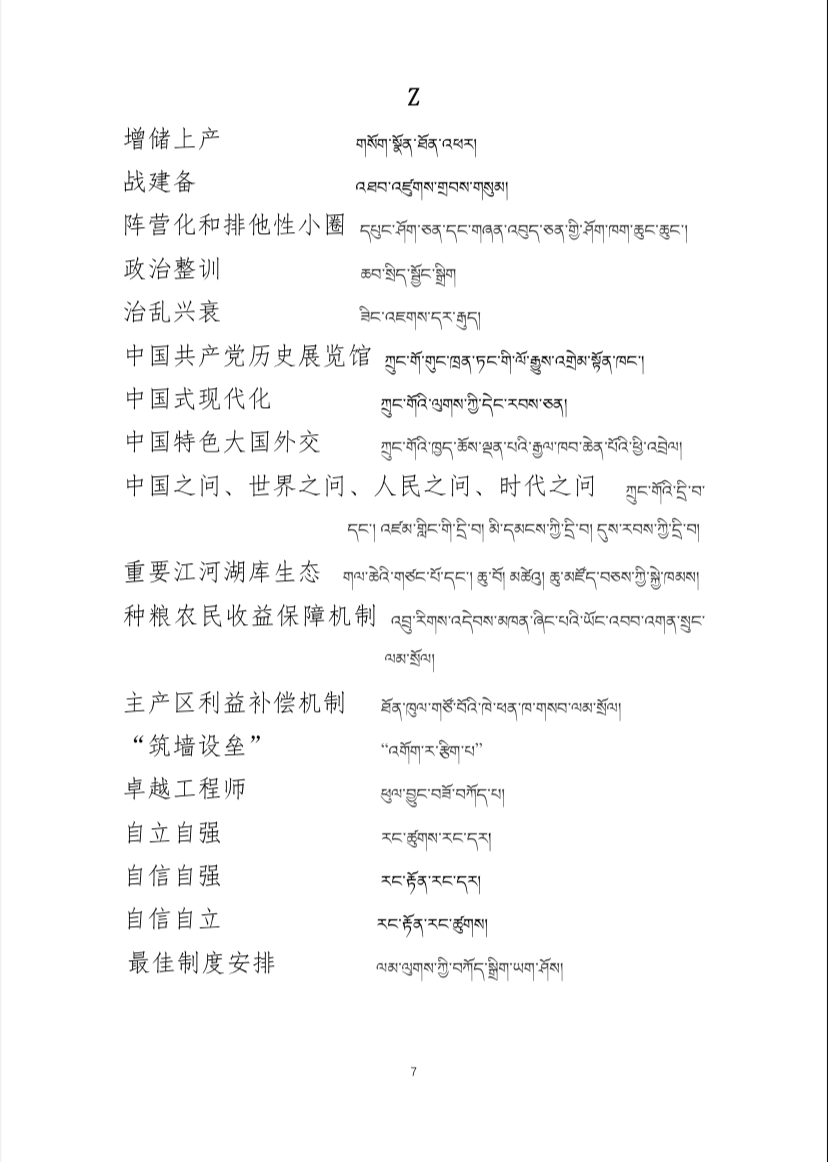 Z
增储上产 གསོག་སྣོན་ཐོན་འཕར།
战建备 འཐབ་འཛུགས་གྲབས་གསུམ།
阵营化和排他性小圈 དཔུང་ཤོག་ཅན་དང་གཞན་འབུད་ཅན་གྱི་ཤོག་ཁག་ཆུང་ཆུང་།
政治整训 ཆབ་སྲིད་སྦྱོང་སྒྲིག
治乱兴衰 ཟིང་འཇགས་དར་རྒུད།
中国共产党历史展览馆 ཀྲུང་གོ་གུང་ཁྲན་ཏང་གི་ལོ་རྒྱུས་འགྲེམ་སྟོན་ཁང་།
中国式现代化 ཀྲུང་གོའི་ལུགས་ཀྱི་དེང་རབས་ཅན།
中国特色大国外交 ཀྲུང་གོའི་ཁྱད་ཆོས་ལྡན་པའི་རྒྱལ་ཁབ་ཆེན་པོའི་ཕྱི་འབྲེལ།
中国之问、世界之问、人民之问、时代之问 ཀྲུང་གོའི་དྲི་བ་
དང་། འཛམ་གླིང་གི་དྲི་བ། མི་དམངས་ཀྱི་དྲི་བ། དུས་རབས་ཀྱི་དྲི་བ།
重要江河湖库生态 གལ་ཆེའི་གཙང་པོ་དང་། ཆུ་བོ། མཚེའུ། ཆུ་མཛོད་བཅས་ཀྱི་སྐྱེ་ཁམས།
种粮农民收益保障机制 འབྲུ་རིགས་འདེབས་མཁན་ཞིང་པའི་ཡོང་འབབ་འགན་སྲུང་
ལམ་སྲོལ།
主产区利益补偿机制 ཐོན་ཁུལ་གཙོ་བོའི་ཁེ་ཕན་ཁ་གསབ་ལམ་སྲོལ།
“筑墙设垒” “འགོག་ར་རྩིག་པ”
卓越工程师 ཕུལ་བྱུང་བཟོ་བཀོད་པ།
自立自强 རང་ཚུགས་རང་དར།
自信自强 རང་རྟོན་རང་དར།
自信自立 རང་རྟོན་རང་ཚུགས།
最佳制度安排 ལམ་ལུགས་ཀྱི་བཀོད་སྒྲིག་ཡག་ཤོས།
7